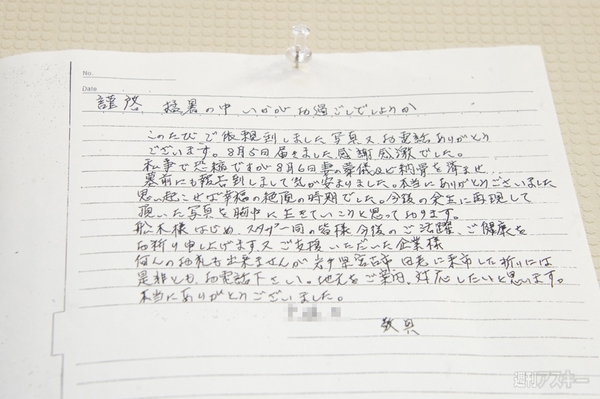 No.
Date
謹啓 猛暑の中いかがお過ごしでしょうか
このたびご依頼到しました写真又お電話ありがとう
ございます。8月5日届きました感謝感激でした。
私事で恐縮ですが8月6日妻の葬儀など納骨を済ませ
墓前にも報告到しまして気が安まりました。本当にありがとうございました
思い起こせば幸福の絶頂の時期でした。今後の人生に再現して
頂いた写真を胸中に生きていこうと思っております。
舩木様はじめ、スタッフ一同の皆様今後のご活躍、ご健康を
お祈り申し上げます又ご支援いただいた企業様
何んのお礼も出来ませんが岩手県宮古市田老に来市した折りには
是非とも、お電話下さい。地元をご案内、対応したいと思います。
本当にありがとうございました。
敬具
週刊アスキー